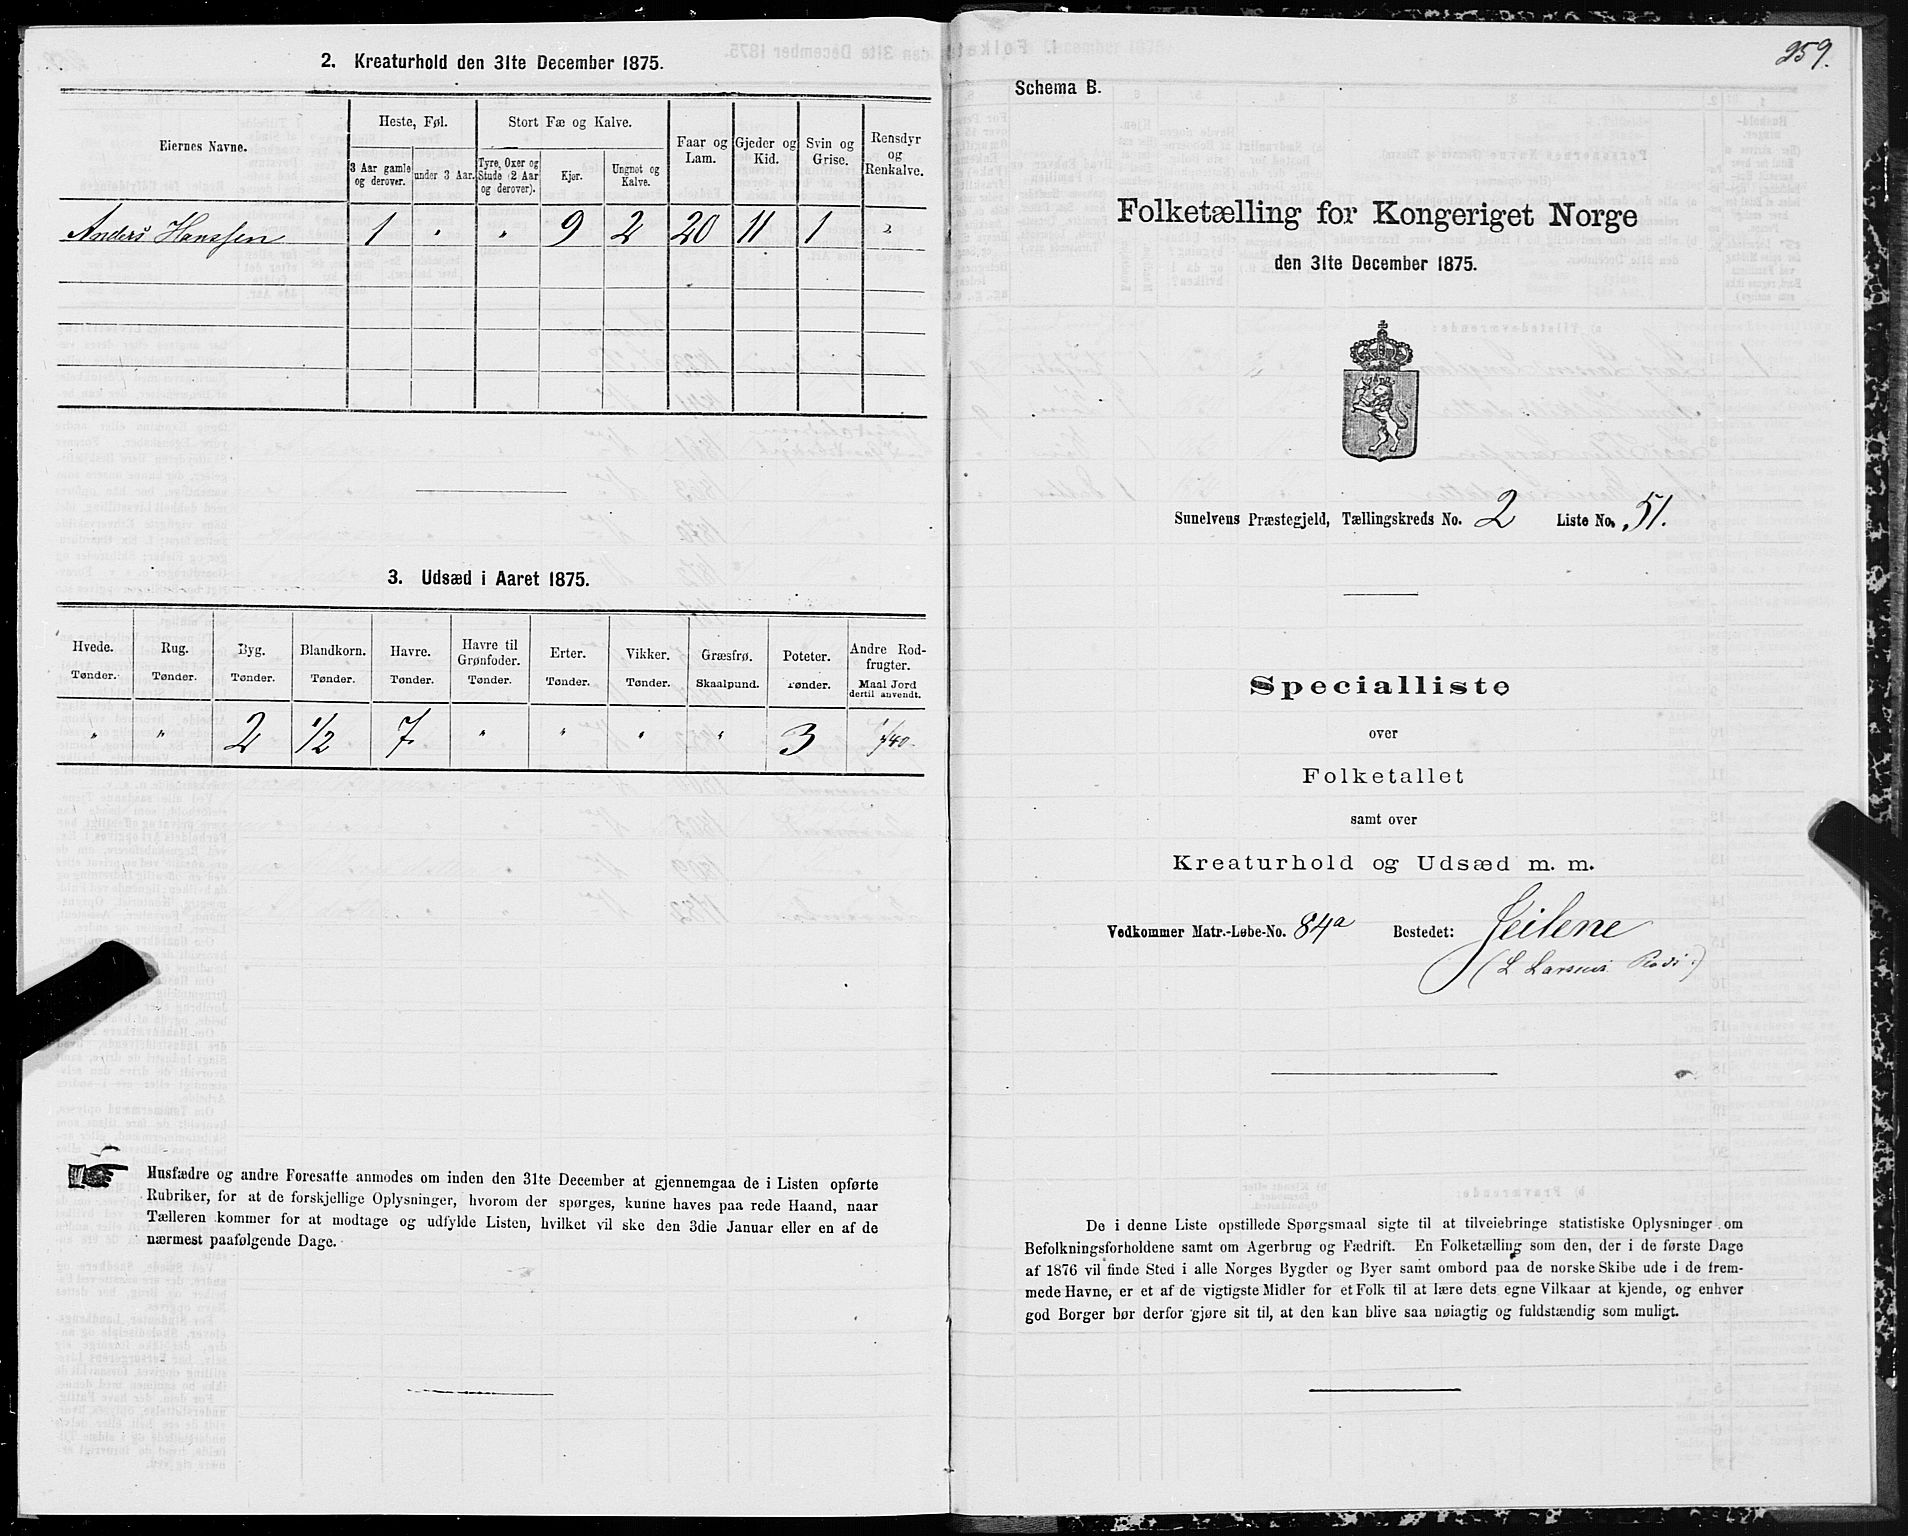 2. Kreaturhold den 31te December 1875.
Eiernes Navne.
Heste, Føl.
Stort Fæ og Kalve.
Faar og Lam.
Gjeder og Kid.
Svin og Grise.
Rensdyr og Renkalve.
3 Aar gamle og derover.
under 3 Aar.
Tyre, Oxer og Stude (2 Aar og derover).
Kjør.
Ungnøt og Kalve.
Anders Hanssen 1 " " 9 2 20 11 1 "
3. Udsæd i Aaret 1875.
Hvede. Rug. Byg. Blandkorn. Havre. Havre til Grønfoder. Erter. Vikker. Græsfrø. Poteter. Andre Rodfrugter.
Tønder. Tønder. Tønder. Tønder. Tønder. Tønder. Tønder. Tønder. Skaalpund. Tønder. Maal Jord dertil anvendt.
" " 2 1/2 7 " " " " 3 1/40
Husfædre og andre Foresatte anmodes om inden den 31te December at gjennemgaa de i Listen opførte
Rubriker, for at de forskjellige Oplysninger, hvorom der spørges, kunne haves paa rede Haand, naar
Tælleren kommer for at modtage og udfylde Listen, hvilket vil ske den 3die Januar eller en af de
nærmest paafølgende Dage.
259.
Schema B.
Folketælling for Kongeriget Norge
den 31te December 1875.
Sunelvens Præstegjeld, Tællingskreds No. 2 Liste No. 51.
Specialliste
over
Folketallet
samt over
Kreaturhold og Udsæd m. m.
Vedkommer Matr.-Løbe-No. 84a Bostedet: Jeilene
(L Larsens
De i denne Liste opstillede Spørgsmaal sigte til at tilveiebringe statistiske Oplysninger om
Befolkningsforholdene samt om Agerbrug og Fædrift. En Folketælling som den, der i de første Dage
af 1876 vil finde Sted i alle Norges Bygder og Byer samt ombord paa de norske Skibe ude i de frem-
mede Havne, er et af de vigtigste Midler for et Folk til at lære dets egne Vilkaar at kjende, og enhver
god Borger bør derfor gjøre sit til, at den kan blive saa nøiagtig og fuldstændig som muligt.